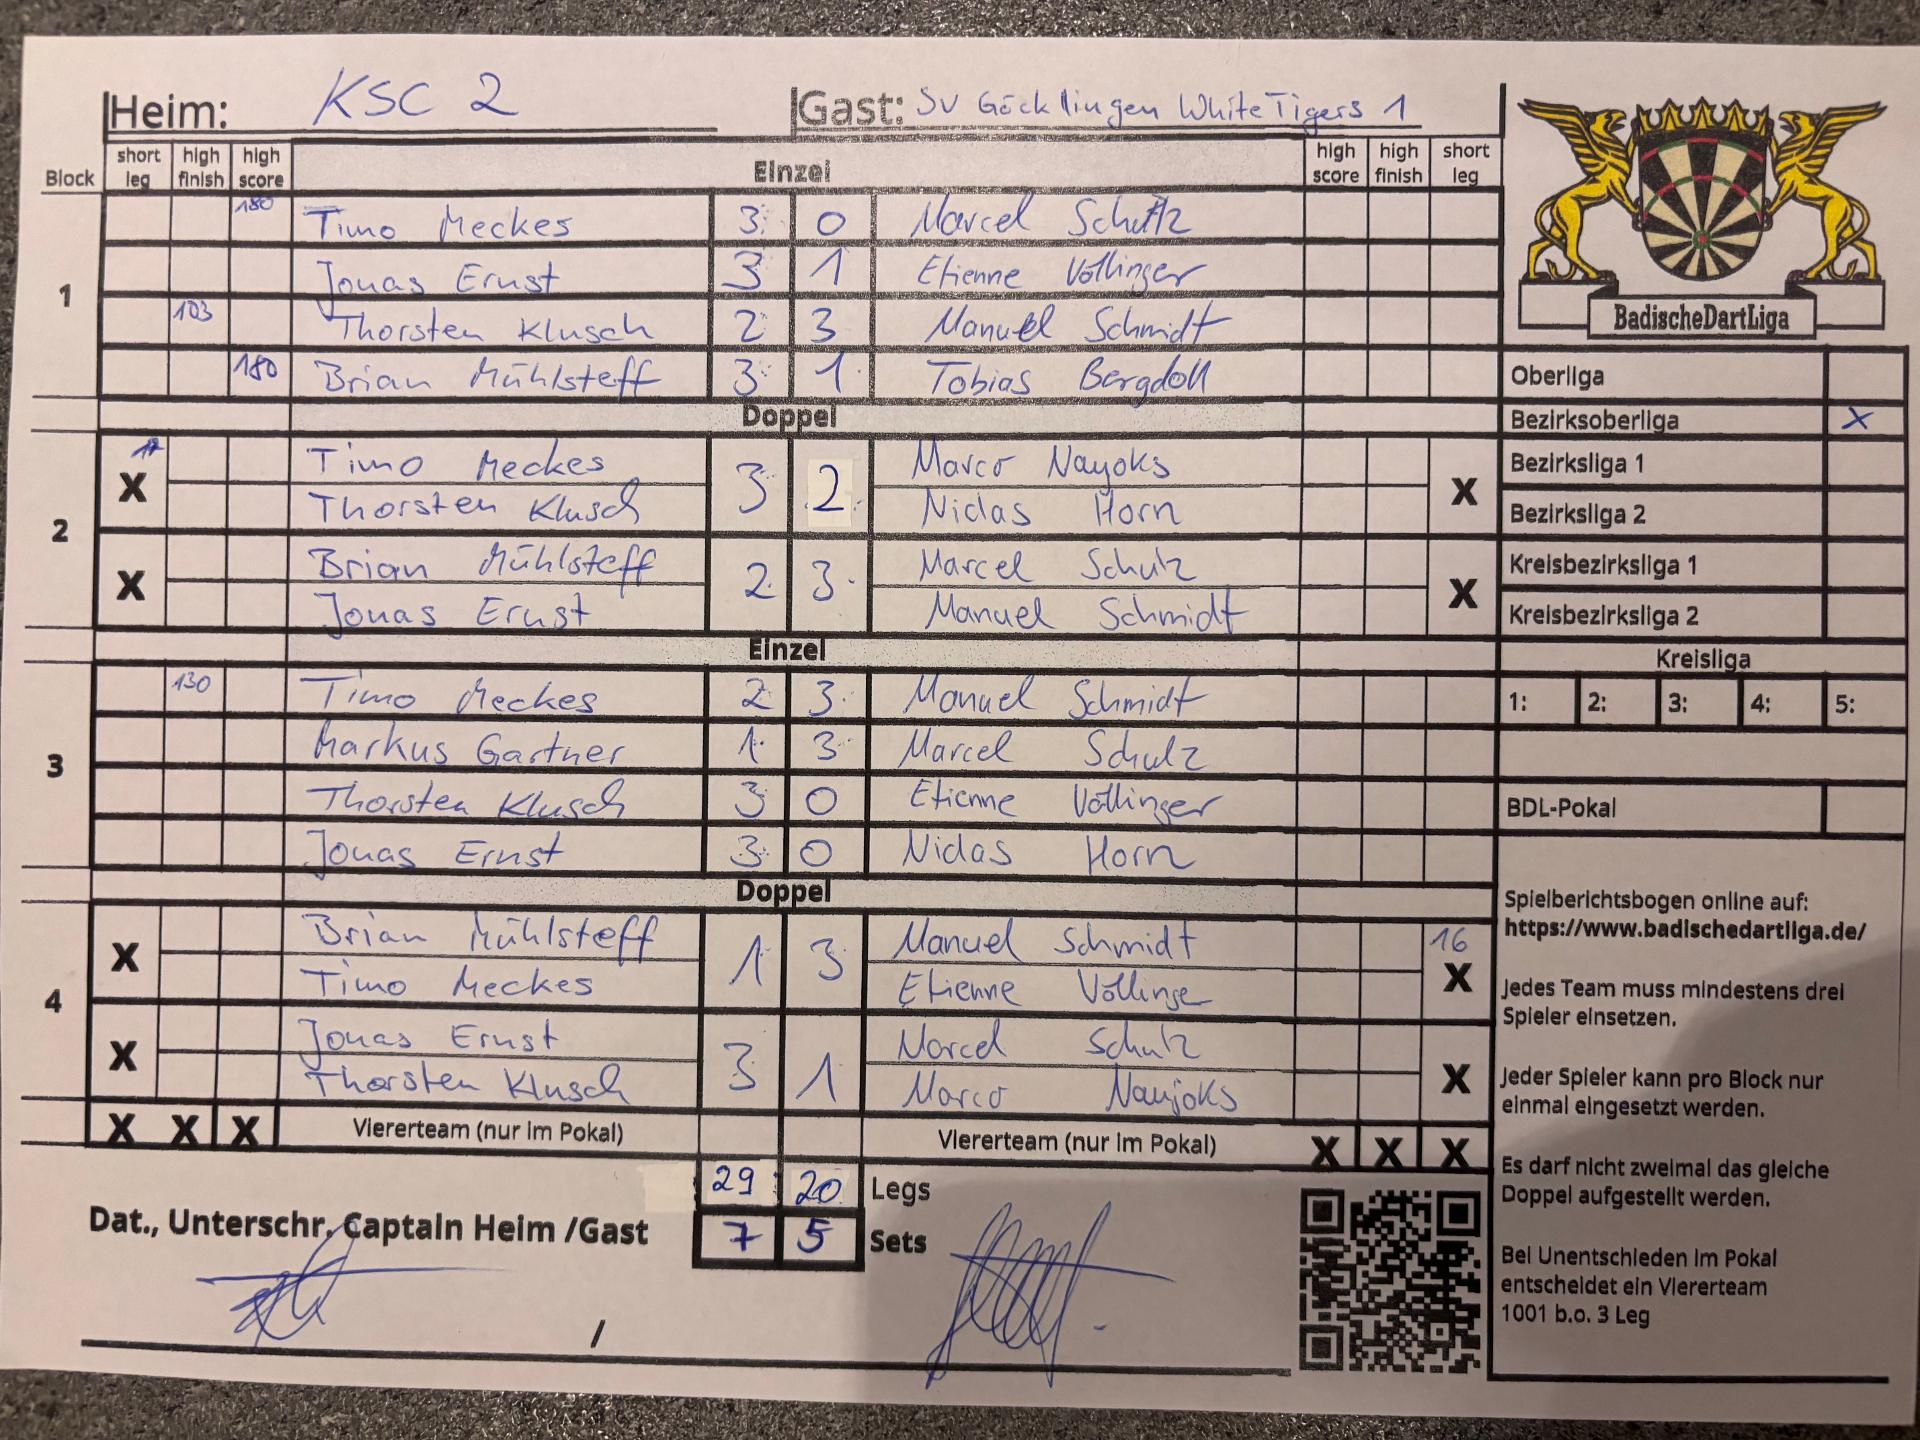 Heim: KSC 2 Gast: SV Göcklingen White Tigers 1
Block short leg high finish high score Einzel high score high finish short leg
1
180 Timo Meckes 3 0 Marcel Schulz
Jonas Ernst 3 1 Etienne Völlinger
103 Thorsten Klusch 2 3 Manuel Schmidt
180 Brian Mühlsteff 3 1 Tobias Bergdoll
Doppel
2
X Timo Meckes 3 2 Marco Nayoks X
Thorsten Klusch Niclas Horn
X Brian Mühlsteff 2 3 Marcel Schulz X
Jonas Ernst Manuel Schmidt
Einzel
3
130 Timo Meckes 2 3 Manuel Schmidt
Markus Gartner 1 3 Marcel Schulz
Thorsten Klusch 3 0 Etienne Völlinger
Jonas Ernst 3 0 Niclas Horn
Doppel
4
X Brian Mühlsteff 1 3 Manuel Schmidt 16 X
Timo Meckes Etienne Völlinge
X Jonas Ernst 3 1 Marcel Schulz X
Thorsten Klusch Marco Naujoks
X X X Viererteam (nur im Pokal) Viererteam (nur im Pokal) X X X
29 20 Legs
Dat., Unterschr. Captain Heim /Gast 7 5 Sets
/
BadischeDartLiga
Oberliga
Bezirksoberliga X
Bezirksliga 1
Bezirksliga 2
Kreisbezirksliga 1
Kreisbezirksliga 2
Kreisliga
1: 2: 3: 4: 5:
BDL-Pokal
Spielberichtsbogen online auf:
https://www.badischedartliga.de/
Jedes Team muss mindestens drei
Spieler einsetzen.
Jeder Spieler kann pro Block nur
einmal eingesetzt werden.
Es darf nicht zweimal das gleiche
Doppel aufgestellt werden.
Bei Unentschieden im Pokal
entscheidet ein Viererteam
1001 b.o. 3 Leg